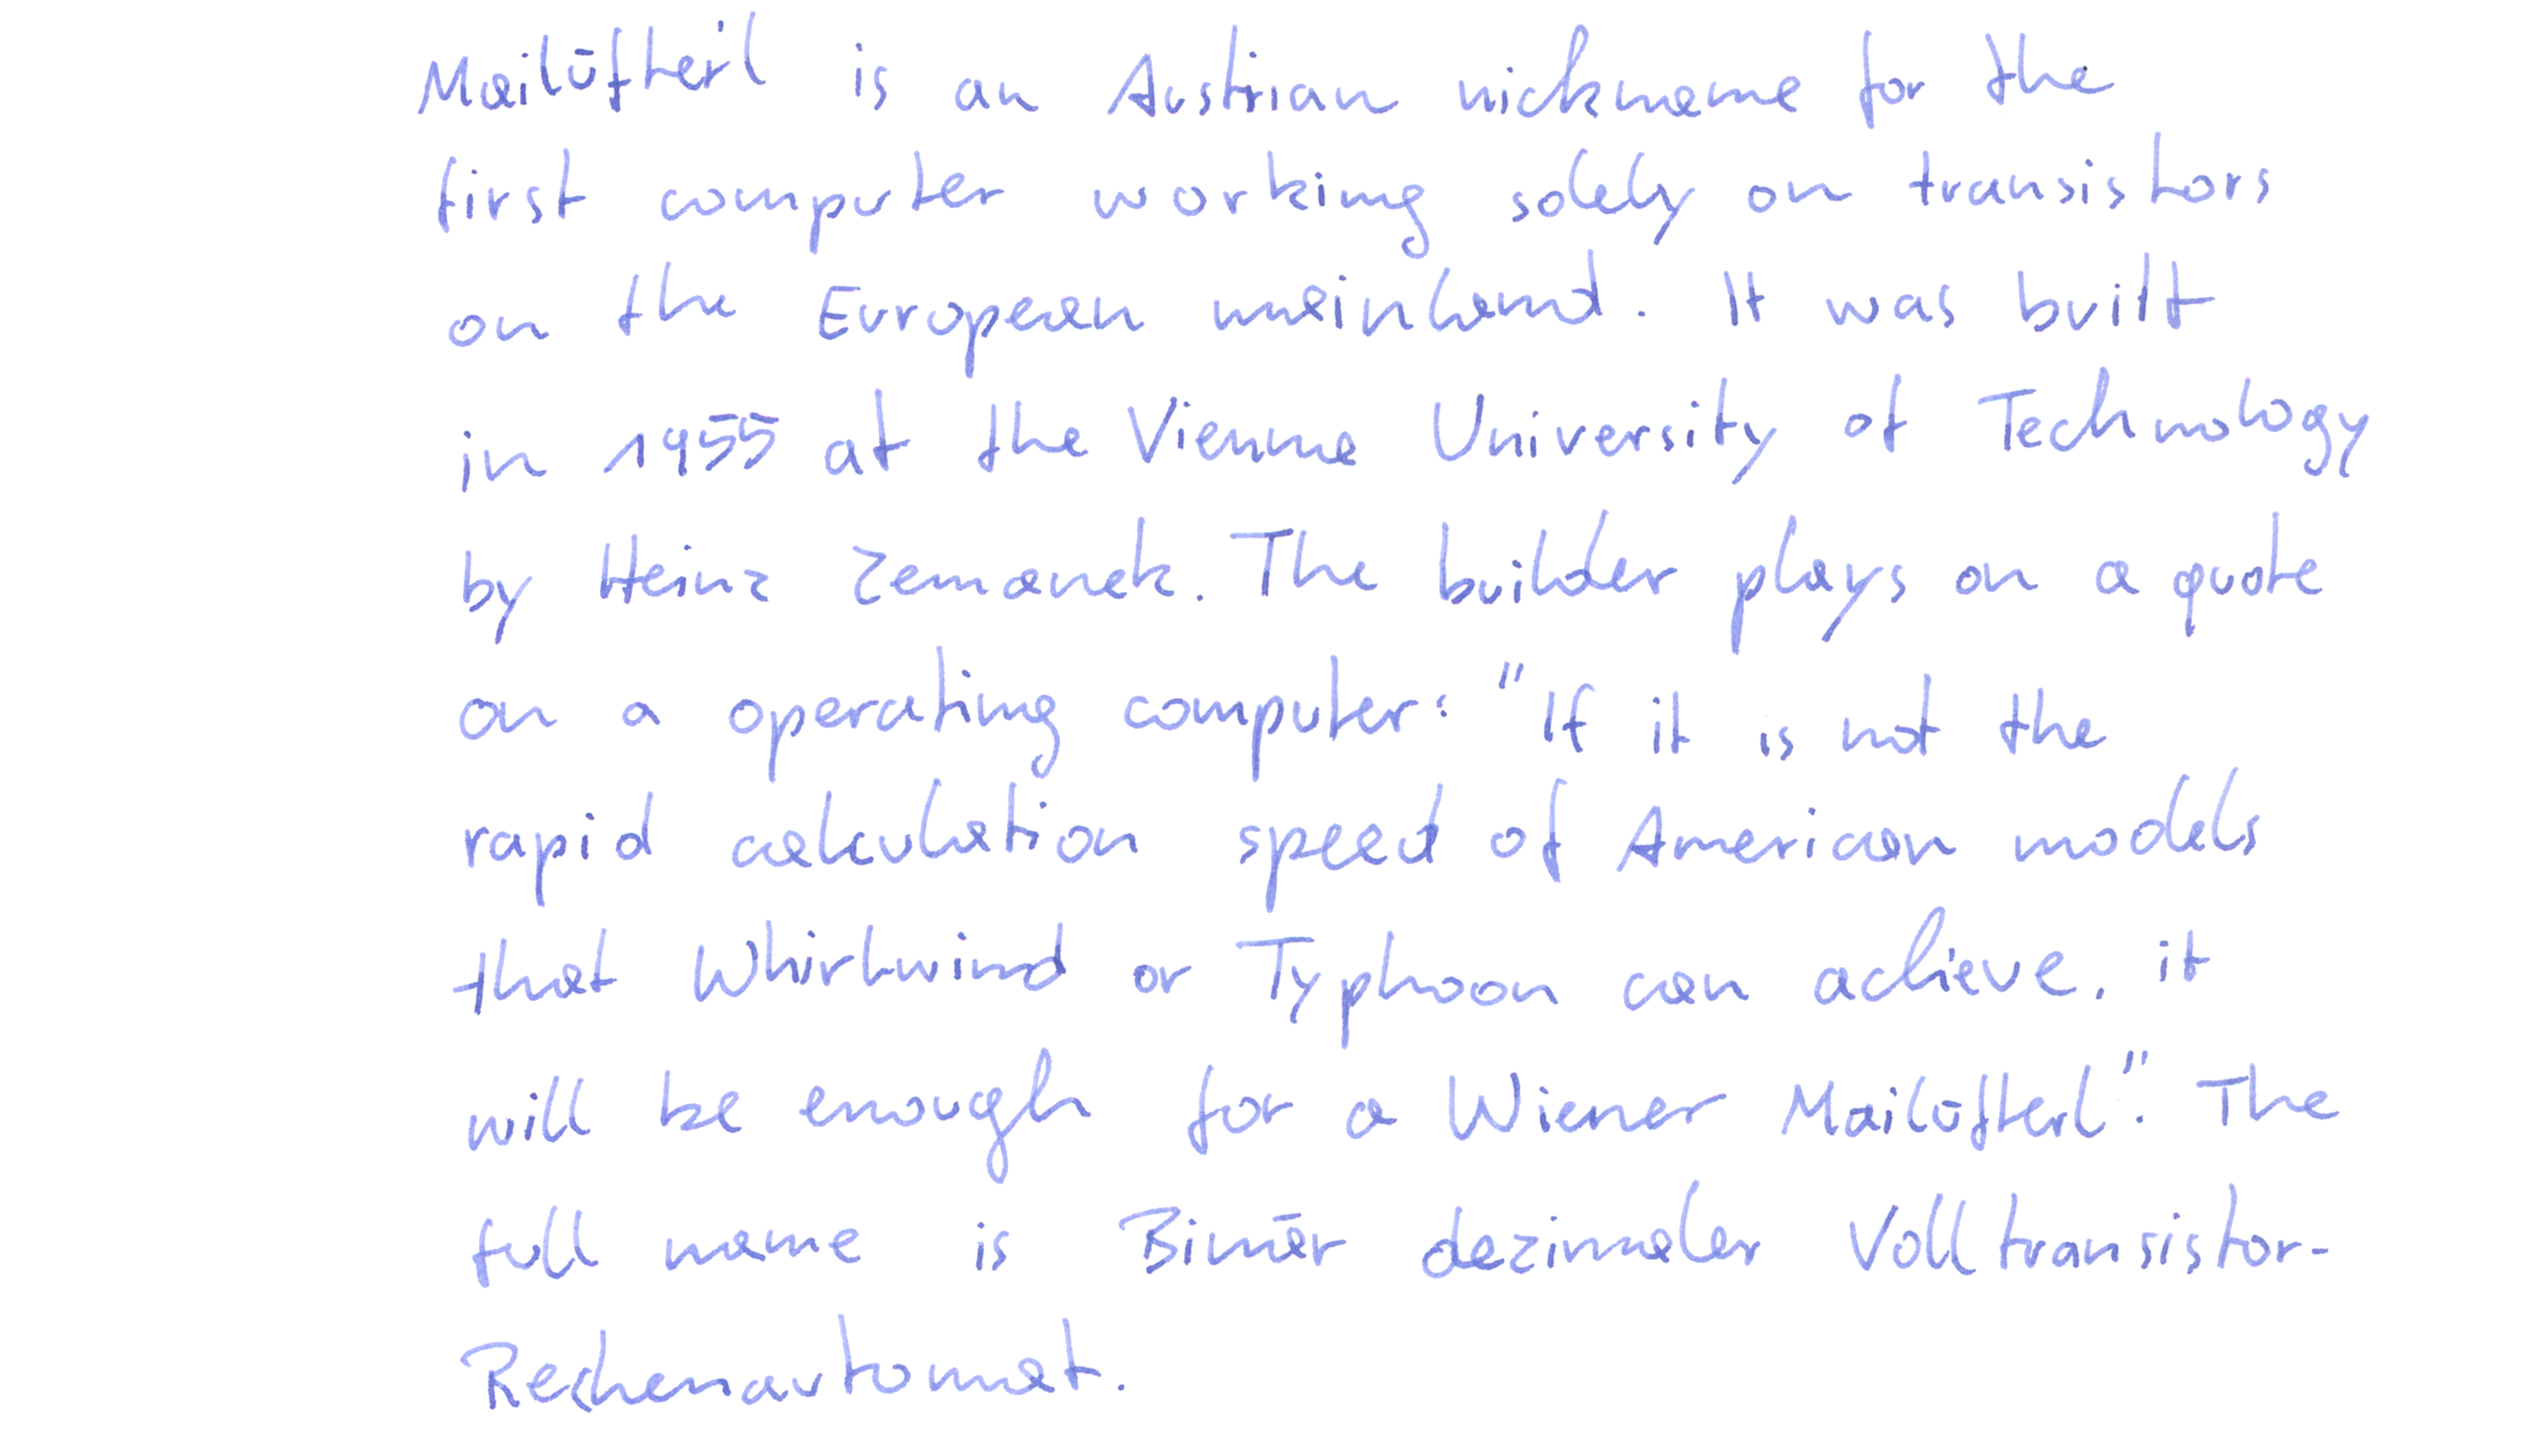 Mailüfterl is an Austrian nickname for the
first computer working solely on transistors
on the European mainland. It was built
in 1955 at the Vienna University of Technology
by Heinz Zemanek. The builder plays on a quote
on a operating computer: "If it is not the
rapid calculation speed of American models
that Whirlwind or Typhoon can achieve, it
will be enough for a Wiener Mailüfterl". The
full name is Binär dezimaler Volltransistor-
Rechenautomat.